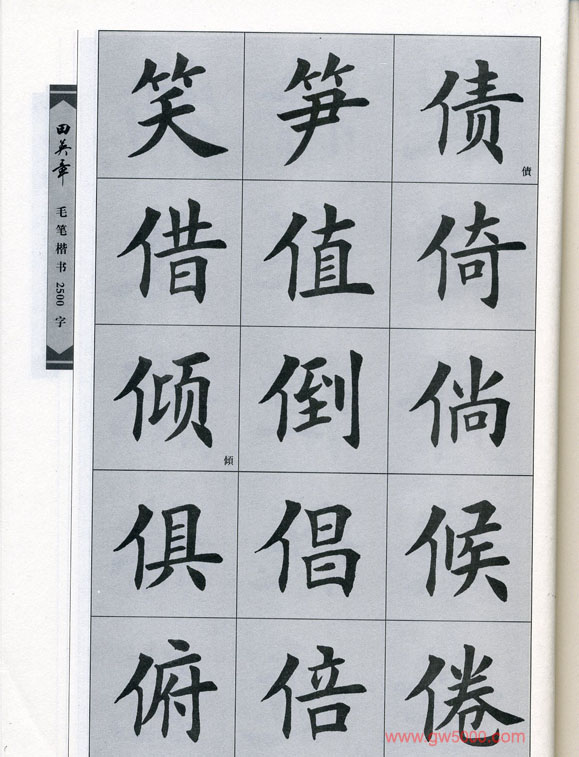 田英章 毛笔楷书2500字
笑 笋 债
債
借 值 倚
倾 倒 倘
傾
俱 倡 候
俯 倍 倦
www.gw5000.com